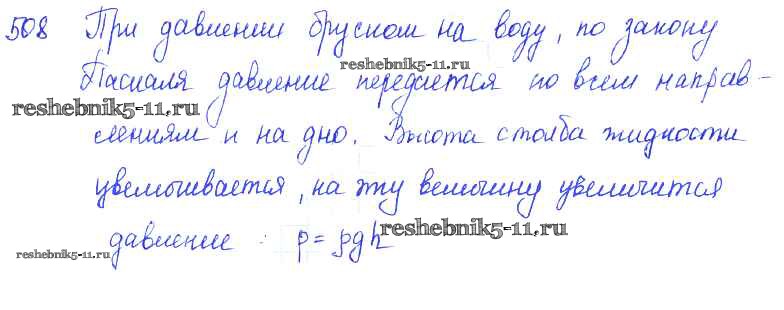 508 При давлении бруском на воду, по закону
reshebnik5-11.ru
Паскаля давление передается по всем направ-
reshebnik5-11.ru
лениям и на дно. Высота столба жидкости
увеличивается, на эту величину увеличится
reshebnik5-11.ru
давление : p = ρgh
reshebnik5-11.ru